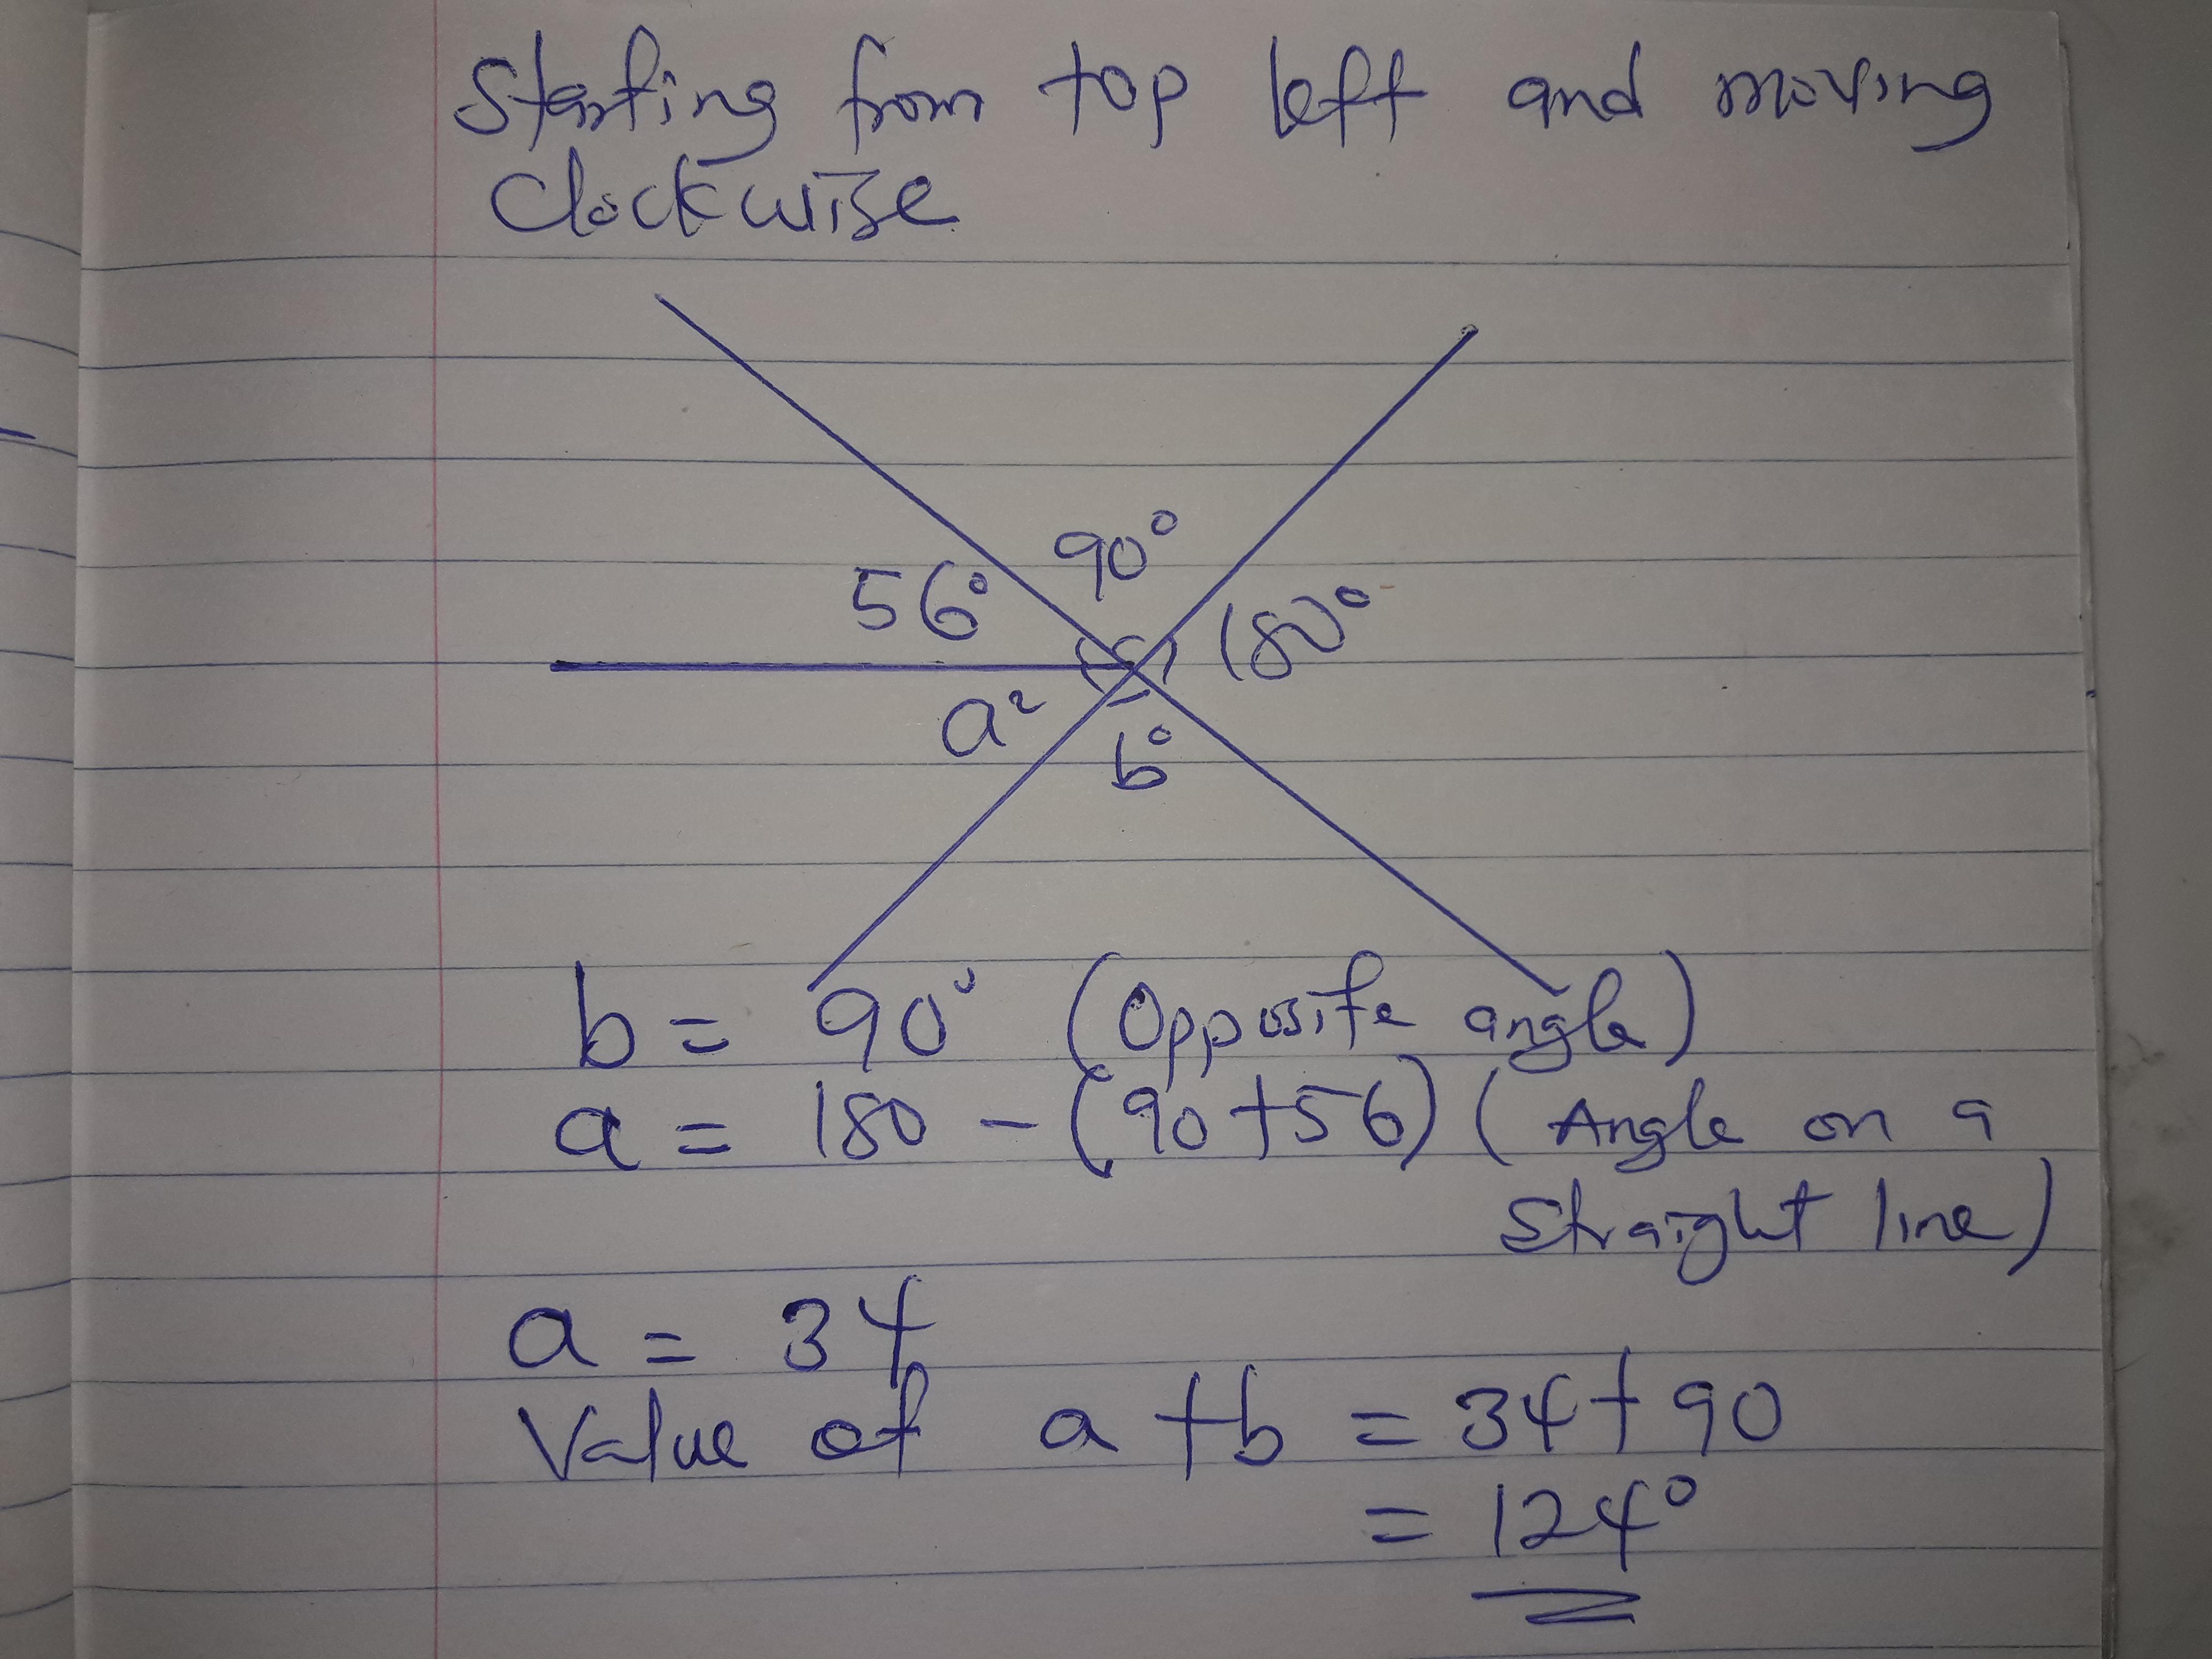 Starting from top left and moving
Clockwise
90°
56°
180°
a°
b°
b = 90° (Opposite angle)
a = 180 - (90+56) (Angle on a
Straight line)
a = 34
Value of a + b = 34 + 90
= 124°